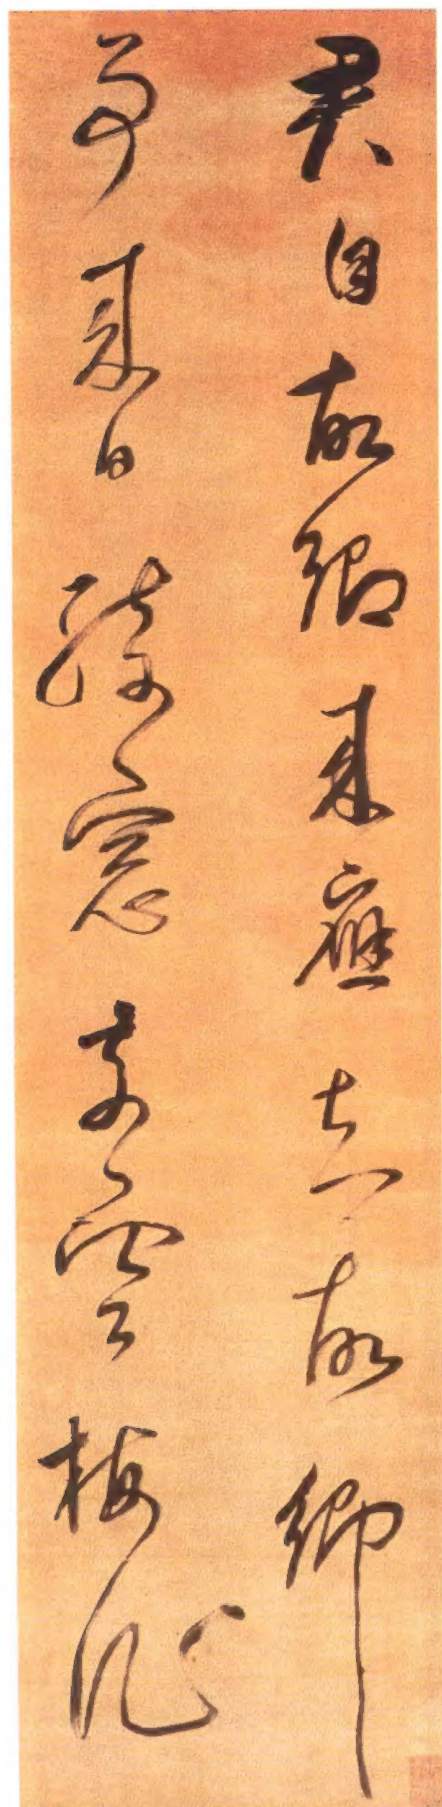 君自故鄉來應知故鄉
事來日綺窗前寒梅